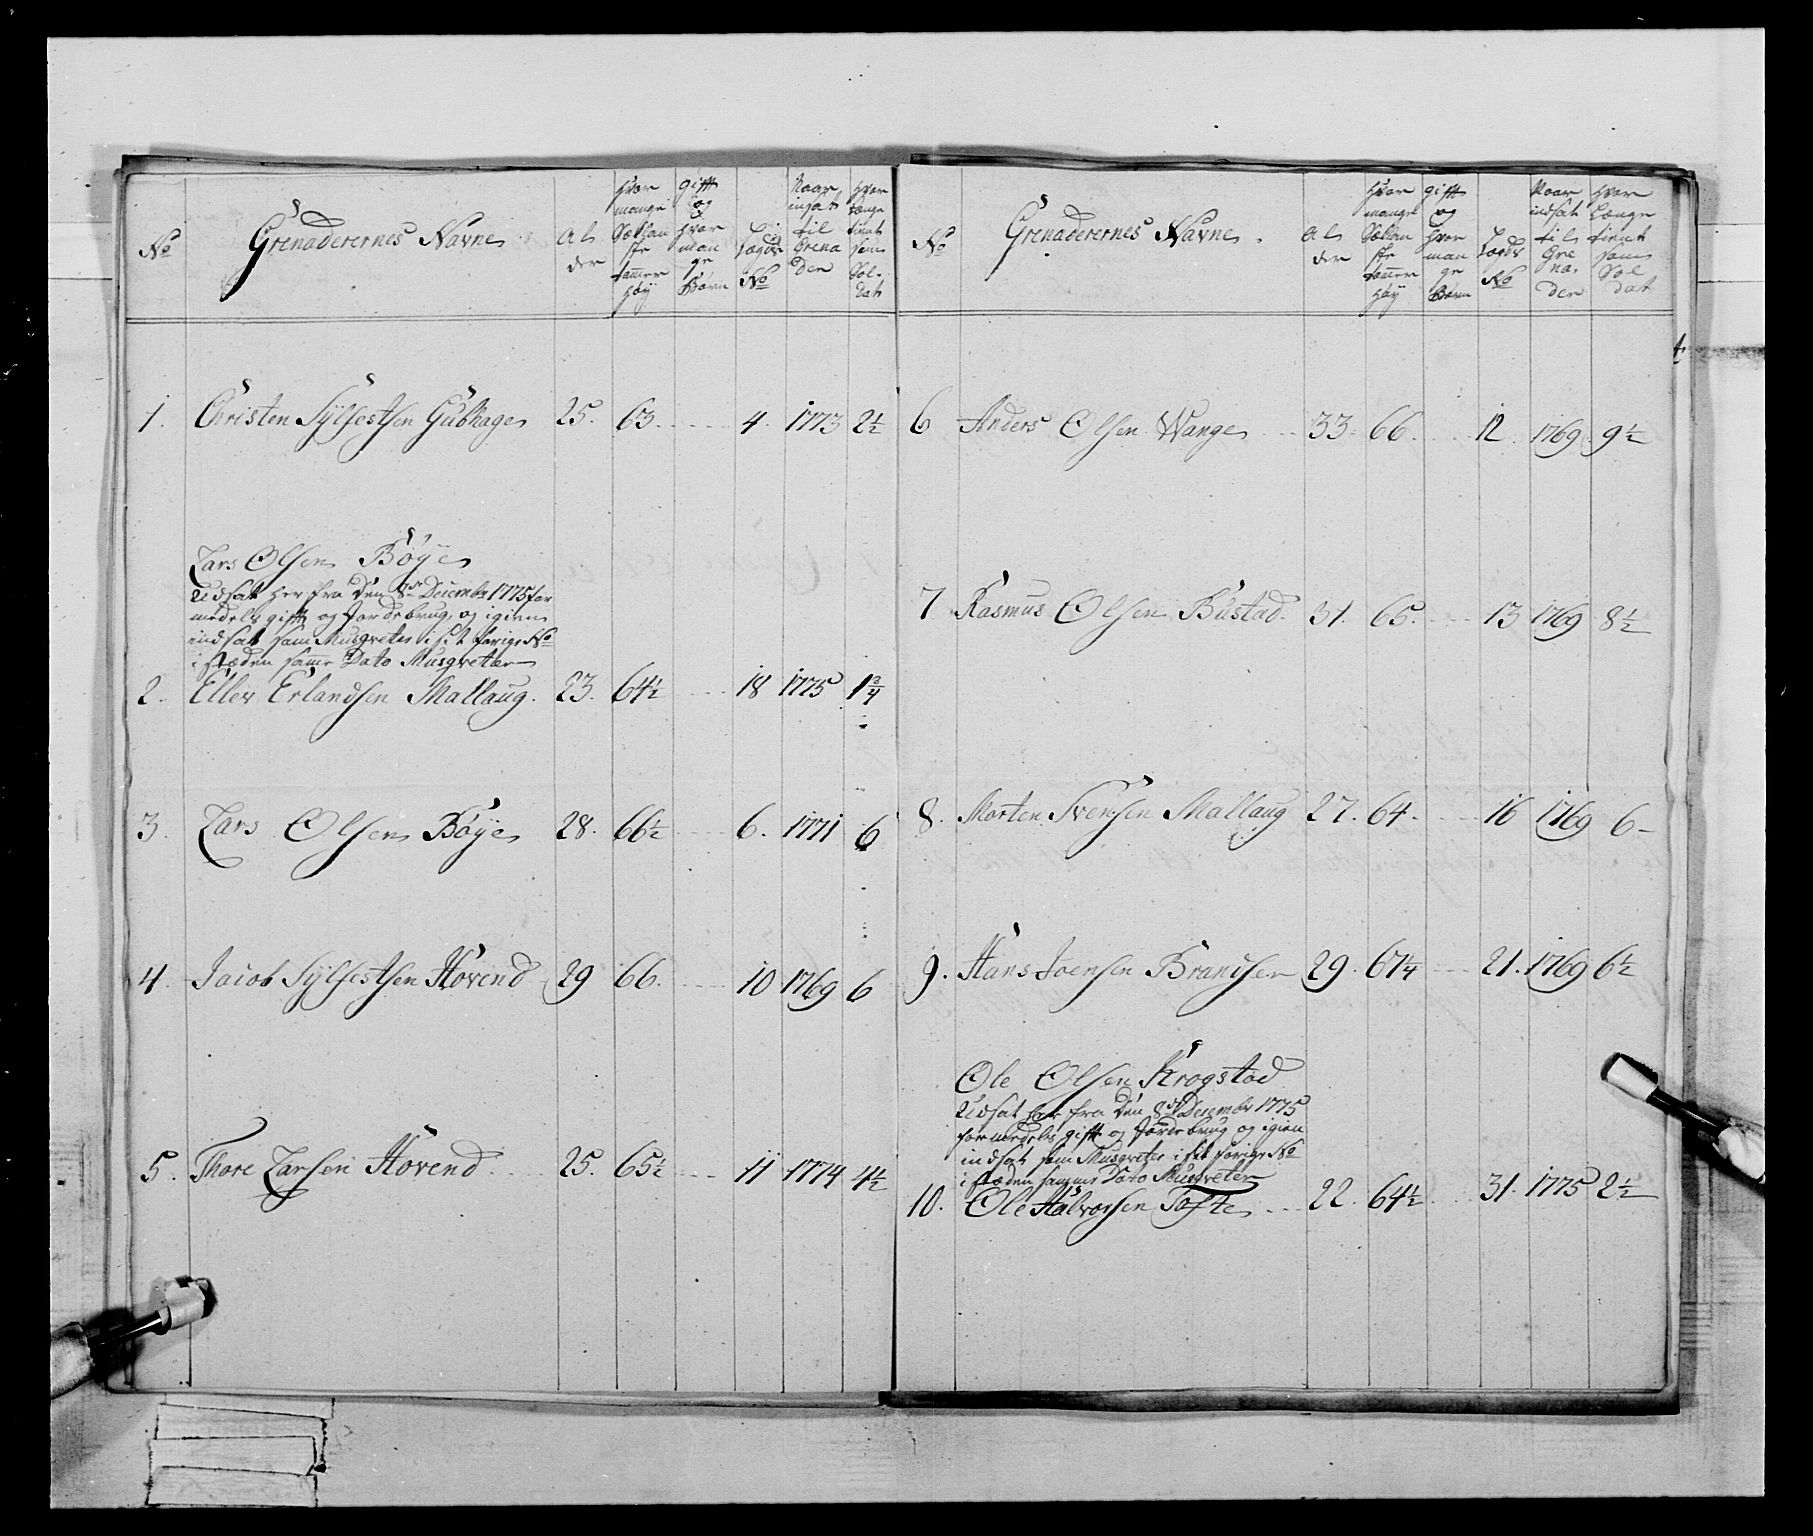 No
Grenaderernes Navne
Al
der
Hvor
mange
Sællan
ske
tommer
Høÿ
gift
og
hvor
man
ge
Børn
Lægds
No
Naar
insat
til
Grena
der
Hvor
længe
tient
som
Sol-
dat
1. Christen Sÿlfestsen 25. 63. 4. 1773 2½
Lars Olsen Bøÿe
Udsat her fra den 8de Decembr 1775 for
medels gift og Jordebrug, og igien
indsat som Musqveter i sit forige No
i stæden samme Dato Musqveteer
2. Ellev Erlandsen Mallaug. 23. 64½ 18 1775 1¾
3. Lars Olsen Bøÿe 28. 66½ 6. 1771 6
4. Jacob Sÿlfestsen Hovend 29 66. 10 1769 6
5. Thore Larsen Hovend 25. 65½ 11 1774 4½
No
Grenaderernes Navne.
Al
der
Hvor
mange
Sællan
ske
tommer
Høÿ
gift
og
hvor
man
ge
Børn
Lægds
No
Naar
indsat
til
Gre
na-
der
Hvor
Længe
tient
som
Sol
dat
6 Anders Olsen Wange 33. 66. 12. 1769. 9½
7. Rasmus Olsen Bustad. 31. 65. 13 1769 8½
8. Morten Svensen Mallaug 27. 64. 16 1769 6
9. Hans Joensen 29. 67¼ 21. 1769 6½
Ole Olsen Krogstad
Udsat her fra den 8de Decembr 1775
formedels gift og Jordebrug og igien
indsat som Musqveter i sit forige No
i stæden samme Dato Musqveter
10. Ole Halvorsen Tofte 22. 64½ 31. 1775 2½